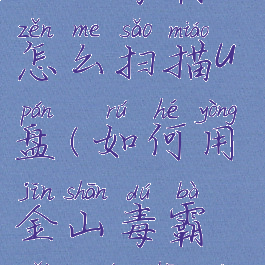 zěn me sǎo miáo
怎么扫描U
pán rú hé yòng
盘(如何用
jīn shān dú bà
金山毒霸